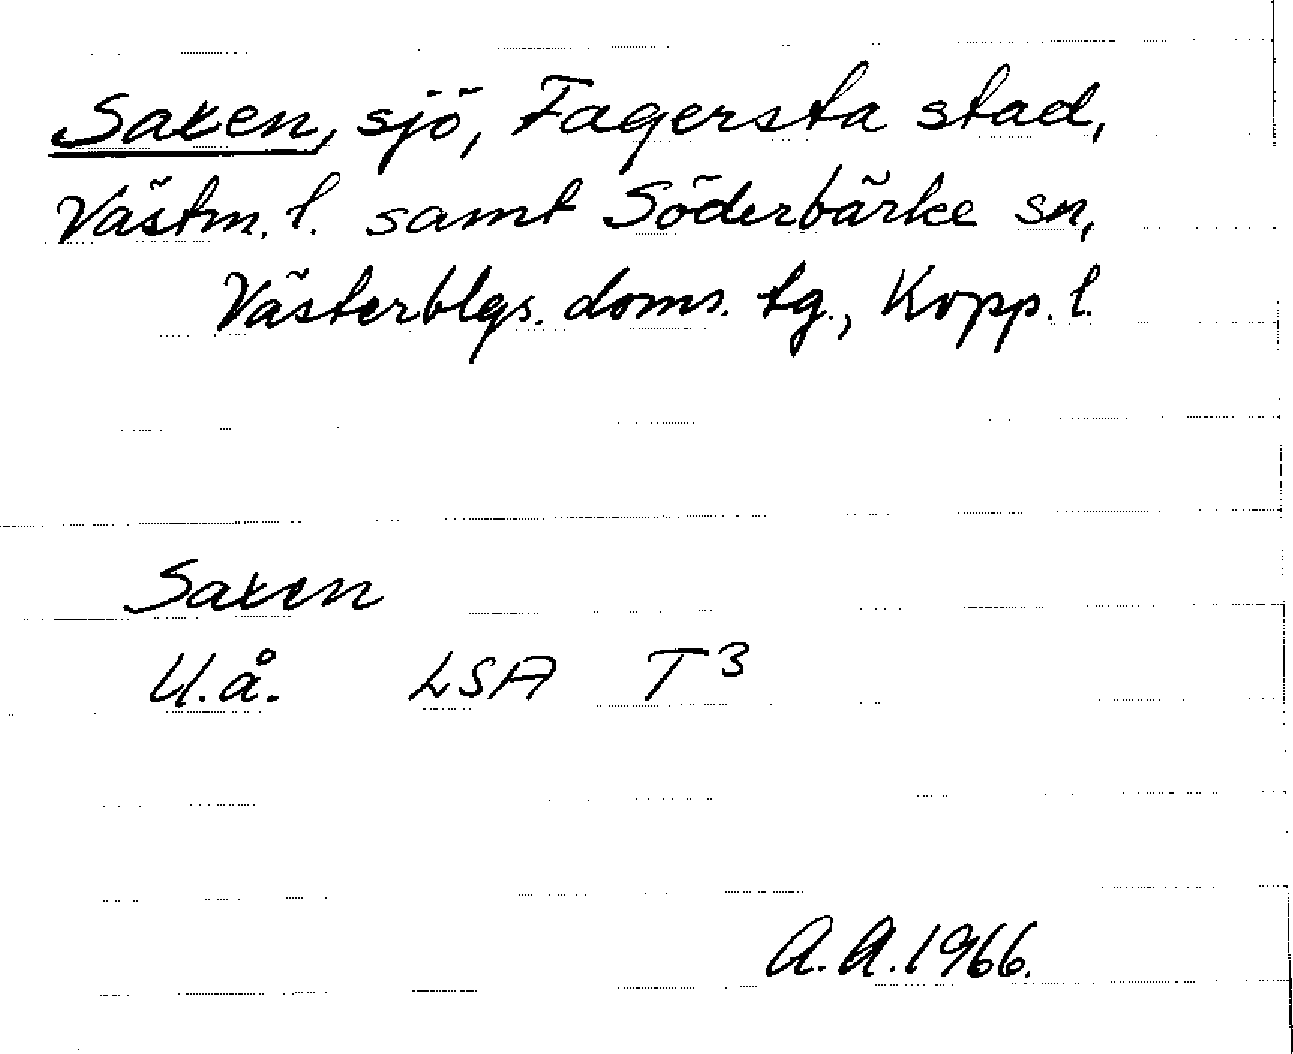 Saxen, sjö, Fagersta stad,
Västm. l. samt Söderbärke sn,
Västerblgs. doms. tg., Kopp. l.
Saxen
U.å. LSA T³
A.A. 1966.